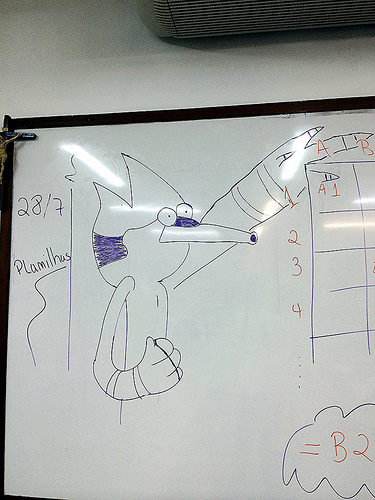 28/7
Planilhas
A B
1 A1
2
3
4
= B2